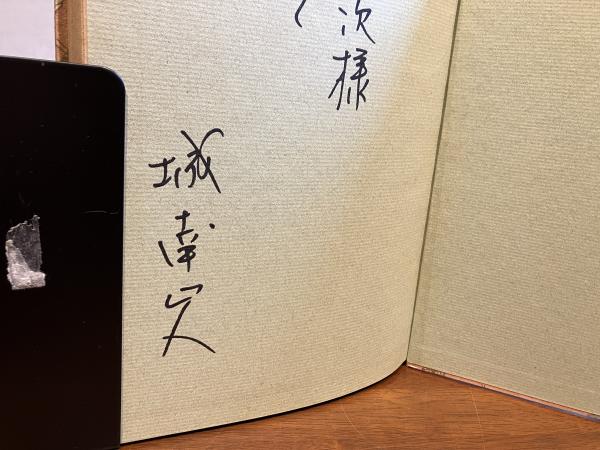 次様
城南